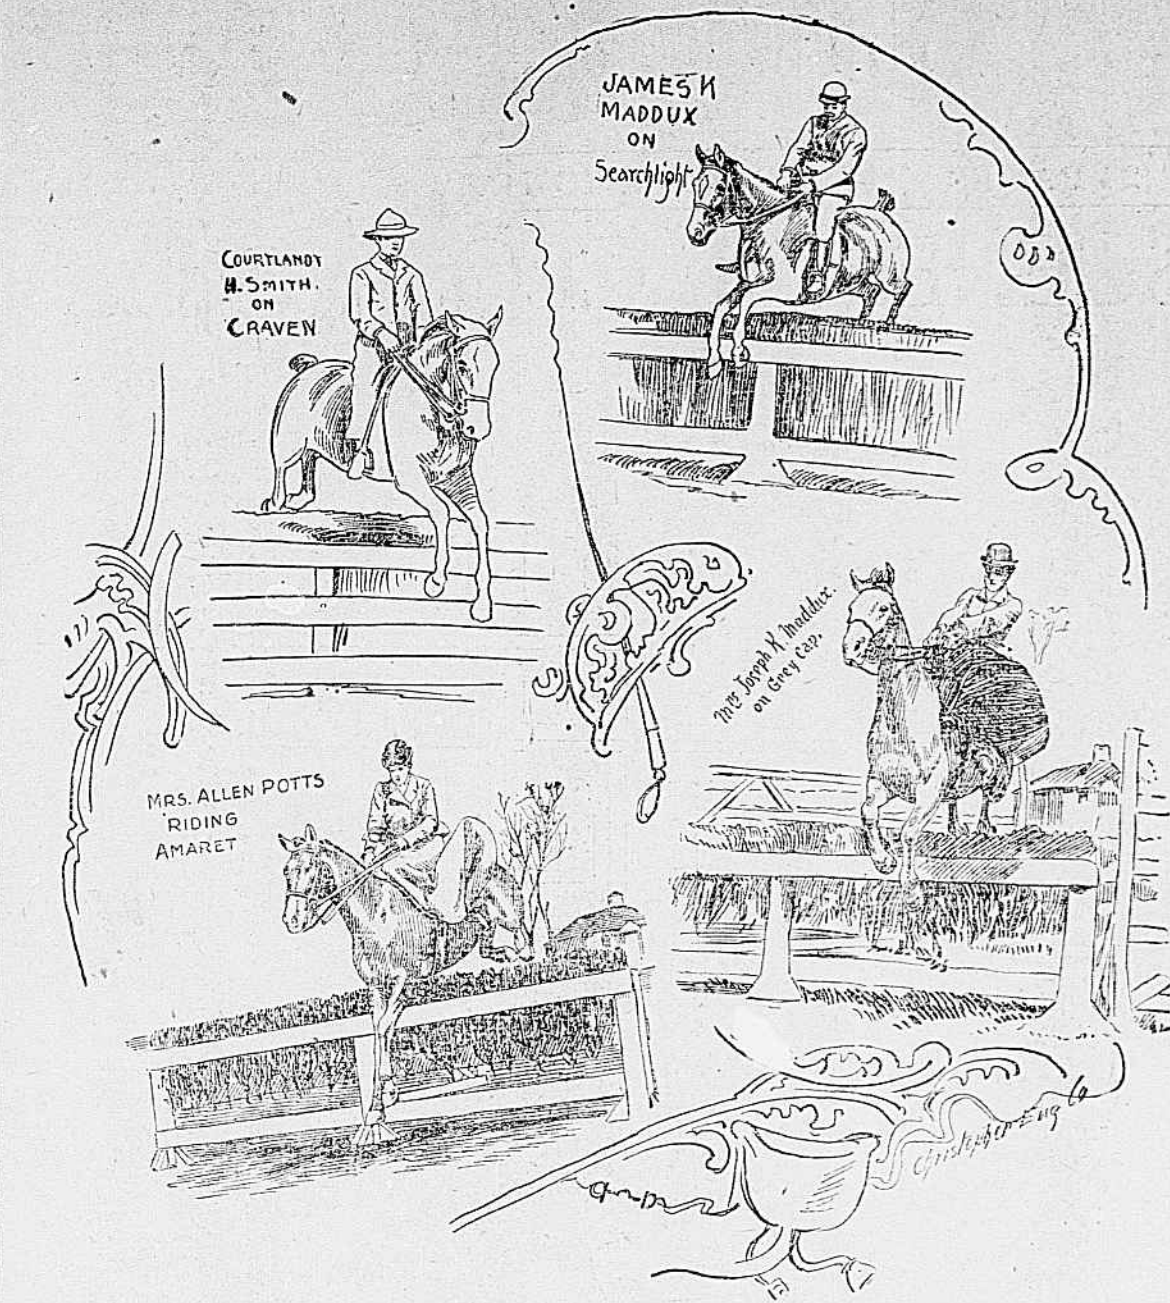 JAMES K
MADDUX
ON
Searchlight
COURTLANDT
H. SMITH.
ON
CRAVEN
Mrs Joseph K. Maddux.
on Grey Cap.
MRS. ALLEN POTTS
RIDING
AMARET
Christopher Eng Co